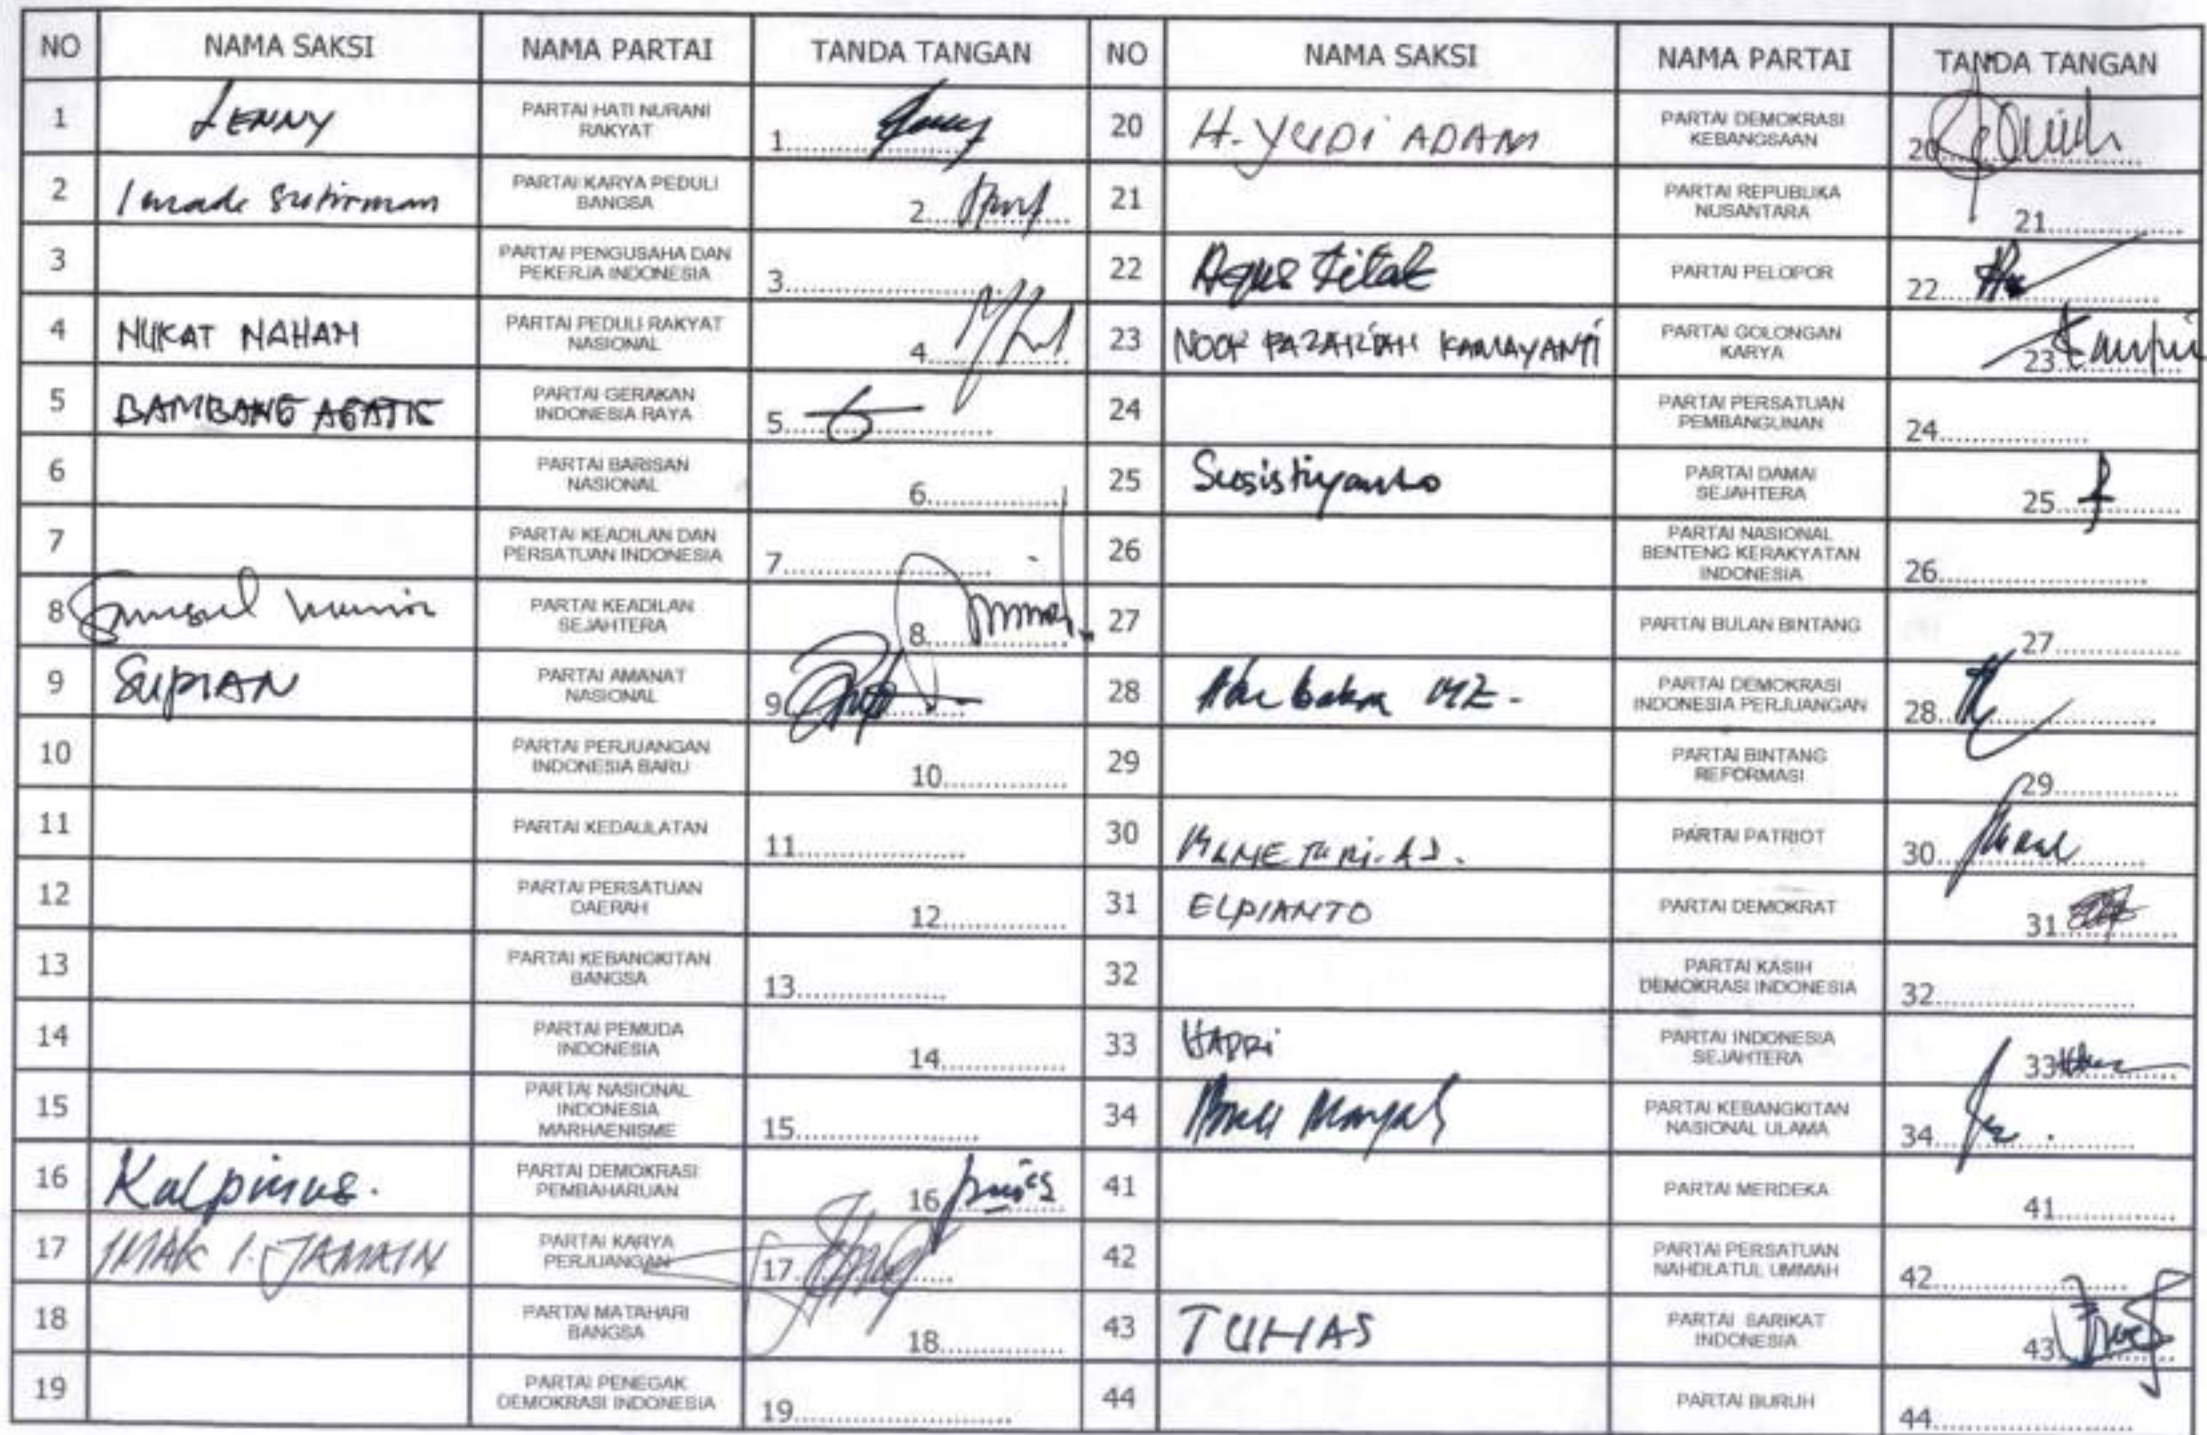 NO NAMA SAKSI NAMA PARTAI TANDA TANGAN NO NAMA SAKSI NAMA PARTAI TANDA TANGAN
1 LENNY PARTAI HATI NURANI RAKYAT 1 20 H. YUDI ADAM PARTAI DEMOKRASI KEBANGSAAN 20
2 I made Sutirman PARTAI KARYA PEDULI BANGSA 2 21 PARTAI REPUBLIKA NUSANTARA 21
3 PARTAI PENGUSAHA DAN PEKERJA INDONESIA 3 22 Agus PARTAI PELOPOR 22
4 NUKAT NAHAM PARTAI PEDULI RAKYAT NASIONAL 4 23 KAMAYANTI PARTAI GOLONGAN KARYA 23
5 BAMBANG PARTAI GERAKAN INDONESIA RAYA 5 24 PARTAI PERSATUAN PEMBANGUNAN 24
6 PARTAI BARISAN NASIONAL 6 25 Susistiyanto PARTAI DAMAI SEJAHTERA 25
7 PARTAI KEADILAN DAN PERSATUAN INDONESIA 7 26 PARTAI NASIONAL BENTENG KERAKYATAN INDONESIA 26
8 PARTAI KEADILAN SEJAHTERA 8 27 PARTAI BULAN BINTANG 27
9 SUPIAN PARTAI AMANAT NASIONAL 9 28 PARTAI DEMOKRASI INDONESIA PERJUANGAN 28
10 PARTAI PERJUANGAN INDONESIA BARU 10 29 PARTAI BINTANG REFORMASI 29
11 PARTAI KEDAULATAN 11 30 PARTAI PATRIOT 30
12 PARTAI PERSATUAN DAERAH 12 31 ELPIANTO PARTAI DEMOKRAT 31
13 PARTAI KEBANGKITAN BANGSA 13 32 PARTAI KASIH DEMOKRASI INDONESIA 32
14 PARTAI PEMUDA INDONESIA 14 33 HAPRI PARTAI INDONESIA SEJAHTERA 33
15 PARTAI NASIONAL INDONESIA MARHAENISME 15 34 PARTAI KEBANGKITAN NASIONAL ULAMA 34
16 Kalpinus. PARTAI DEMOKRASI PEMBAHARUAN 16 41 PARTAI MERDEKA 41
17 IMAK I. JAMAIN PARTAI KARYA PERJUANGAN 17 42 PARTAI PERSATUAN NAHDLATUL UMMAH 42
18 PARTAI MATAHARI BANGSA 18 43 TUHAS PARTAI SARIKAT INDONESIA 43
19 PARTAI PENEGAK DEMOKRASI INDONESIA 19 44 PARTAI BURUH 44